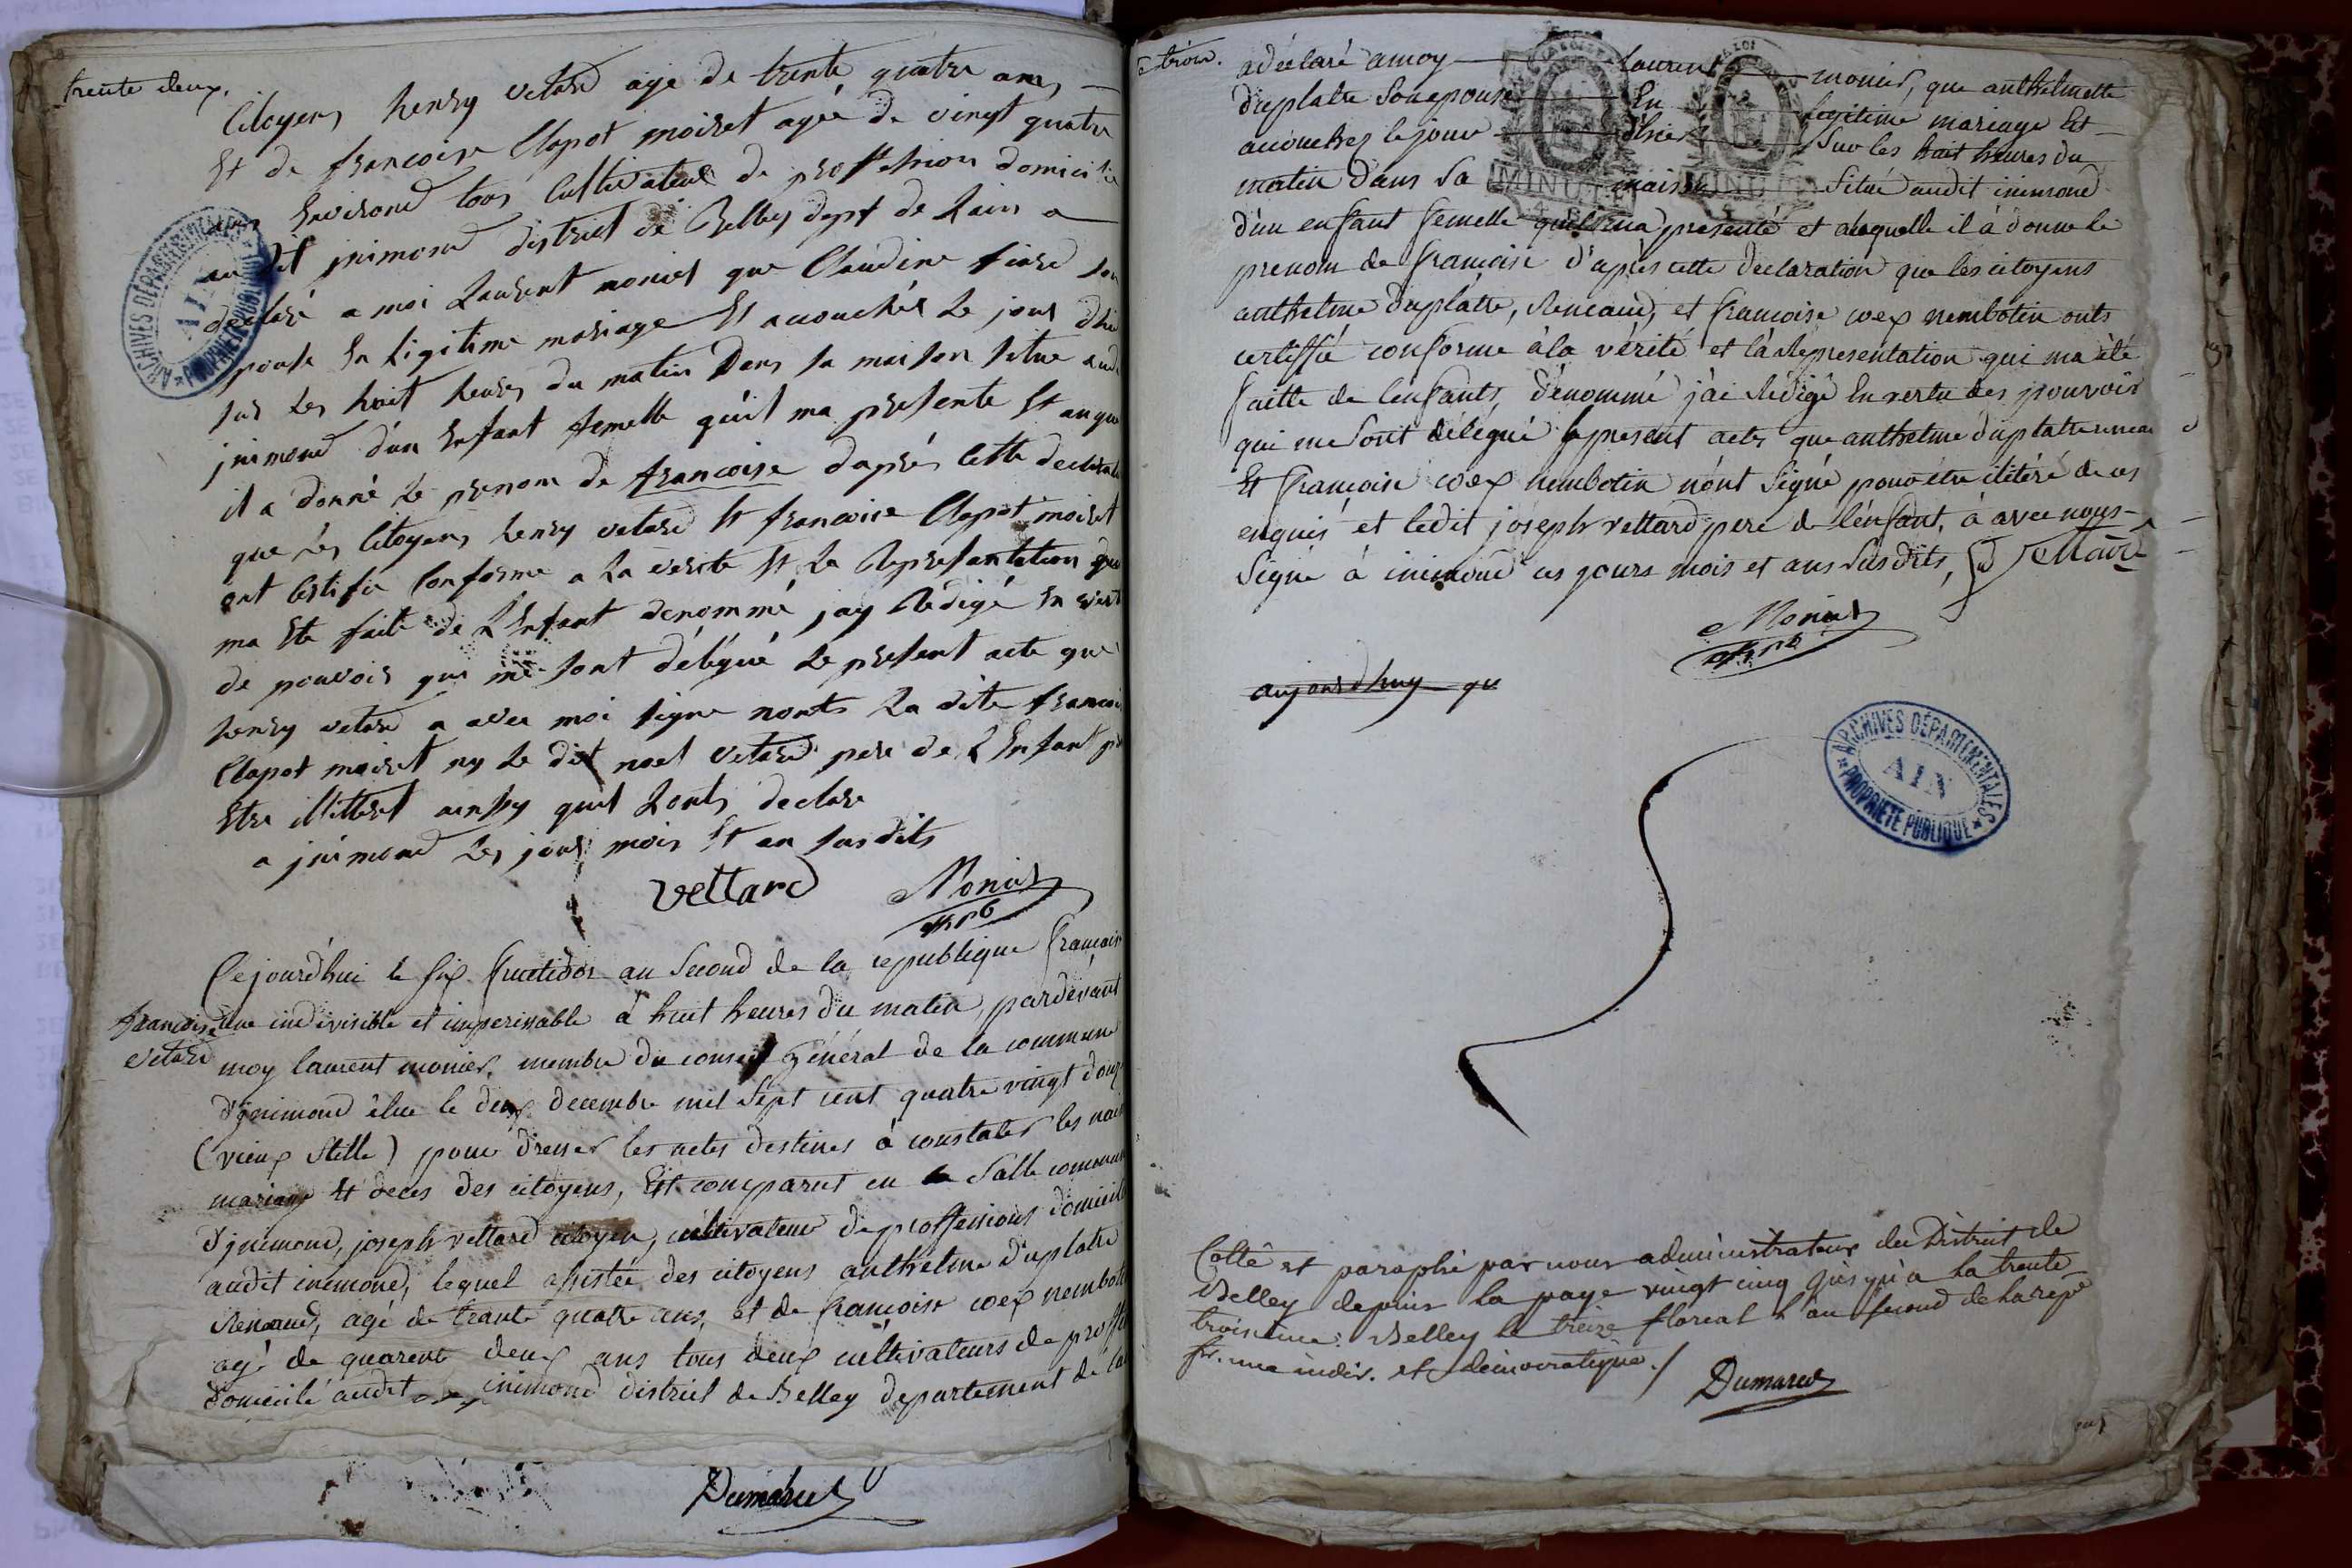 trente deux.
Citoyens henry vetard age de trente quatre ans
Et de francoise Clapot moiret agée de vingt quatre
ans Environd tous Cultivateur de proffession domicilié
au dit jnimond district de Belley dept de Lain a
declaré a moi Laurent monier que Claudine fiard son
Epouse En Ligitime mariage Et accouchée Le jour dhui
sur Les huit heures du matin Dans sa maison situe audit
jnimond d'un Enfant femelle qu'il ma presente Et auquel
il a donné Le prenom de francoise daprés Cette declara
que Les Citoyens henry vetard Et francoise Clapot moiret
ont Certifie Conforme a La verite Et La Representation qui
ma Ete faite de L'Enfant denommé jay Rédigé En vertu
de pouvoir qui me sont délégué Le present acte que
henry vetard a avec moi signe nonts La dite francoise
Clapot moiret ny Le dit noel vetard pere de L'Enfant pr
Etre illitteret ainssy quil Lonts declare
a jnimond Les jour mois Et an susdits
vettard Monier
offr pb
Cejourd'hui le six fructidor an second de la republique francaise
francoise vetard
une indivisible et imperissable à huit heures du matin, pardevant
moy laurent monier, membre du conseil général de la commune
d'jnimond élue le deux decembre mil sept cent quatre vingt douze
(vieux stille) pour dresser les actes destines à constater les nais
mariage et deces des citoyens, Est comparut en la salle commune
d'jnimond, joseph vettard citoyen, cultivateur de proffessions domicilié
audit inimond, lequel assistée des citoyens anthelme duplatre
Renaud, agé de trante quatre ans, et de francoise coex nembotin
agé de quarente deux ans tous deux cultivateurs de proffe
domicilé audit inimond district de Belley departement de lai
Dumarest
trois.
a déclaré a moy Laurent monier, que anthelmette
duplatre son epouse En legitime mariage Est
accouchez le jour d'hier sur les huit heures du
matin dans sa maison situé audit inimond
MINUTE MINUTE
d'un enfant femelle quil ma presenté et alaquelle il à donné le
prenom de francoise d'après cette declaration que les citoyens
anthelme duplâtre, Reneaud, et francoise coex nembotin onts
certiffié conforme à la vérité et la Representation qui ma été
faitte de lenfants, dénommé j'ai Rédigé En vertu des pouvoir
qui me sont délégué le present actes que anthelme duplatre renea d
Et francoise coex nembotin n'ont signé pour étre iliteré de ces
enquis et ledit joseph vettard pere de l'énfant, à avec nous
signe à inimond ces jours mois et ans susdits, vettard
Monier
offr pb
aujourdhuy qu
ARCHIVES DÉPARTEMENTALES
AIN
PROPRIÉTÉ PUBLIQUE
Cotté et paraphé par nous administrateur du District de
Belley depuis la page vingt cinq jusqu'a la trente
troisieme. Belley le treize floreal l'an second de la rep.
fr. une indiv. et democratique./
Dumarest